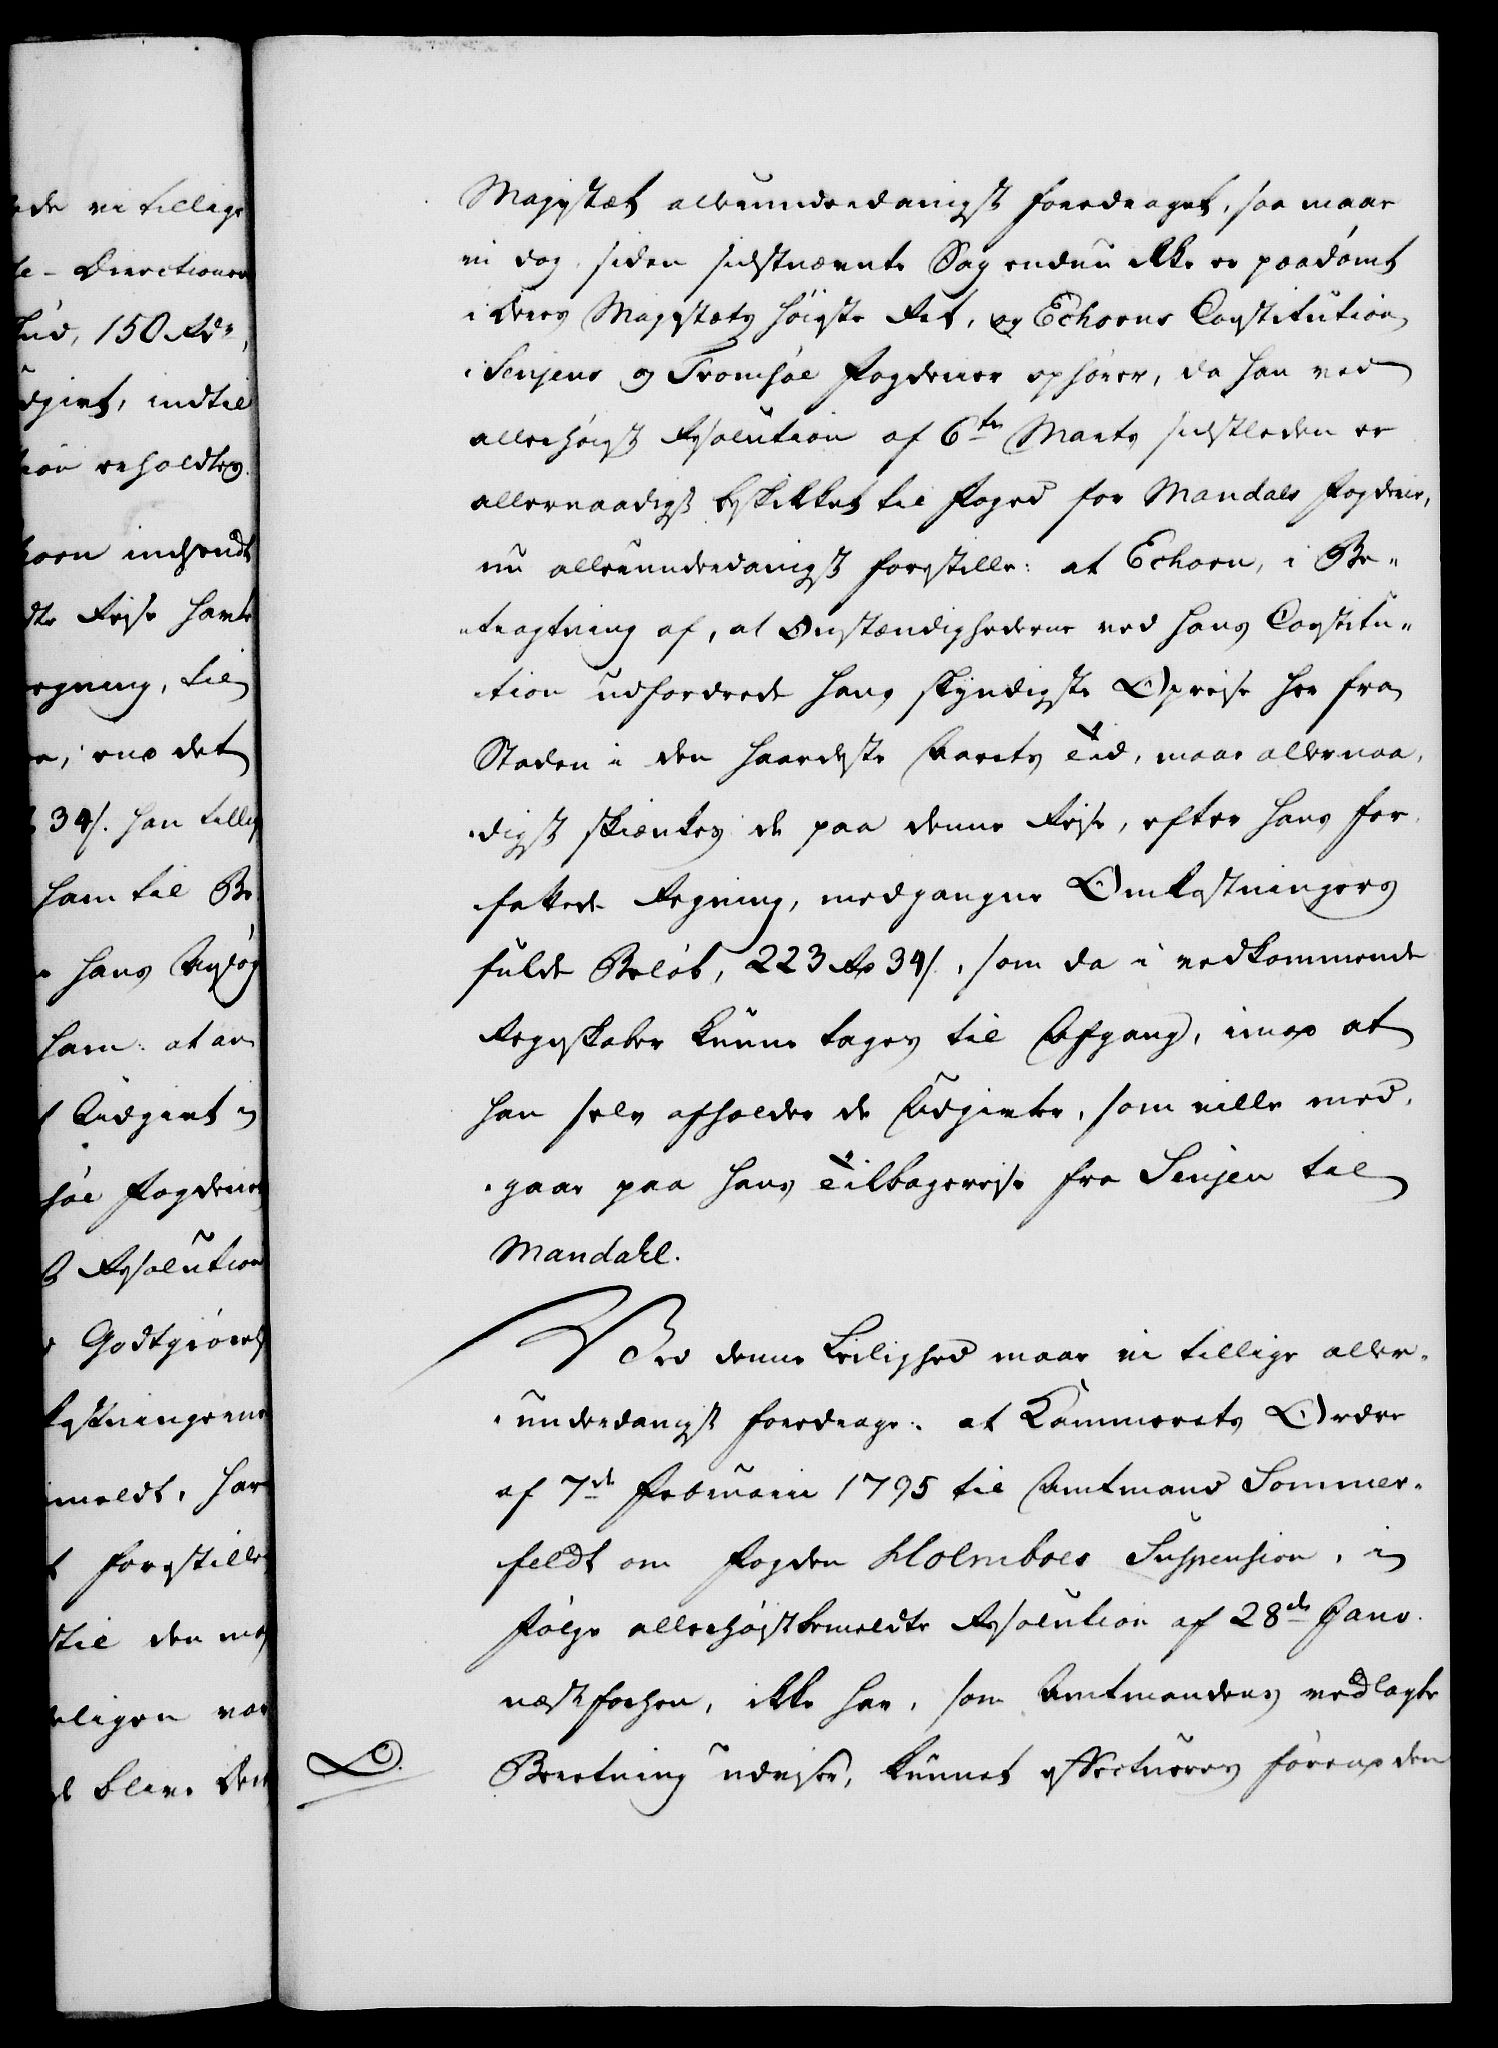 ede vi tillige
te-Directionen
ud, 150 Rdr,
dgivt, indtil
tion erholdtes.
horn indsendt
dte Reise havt
egning, til
, enx det
34 s. han tillig
ham til Be
hans Ansøg
ham: at an
Udgivt i
søe Fogderier
Resolution
Godtgiørels
kostningerne
meldt, har
forestille
til den no
eligen var
blive Der
Majestæt allerunderdanigst foredraget, saa maae
vi dog, siden sidstnævnte Sag endnu ikke er paadømt
i Deres Majestæts Høieste Ret, og Echorns Constitution
i Senjens og Tromsøe Fogderier ophører, da han ved
allerhøigst Resolution af 6te Marts sidstleden er
allernaadigst beskikket til Foged for Mandals Fogderie,
nu allerunderdanigst forestille: at Echorn, i Be-
tragtning af, at Omstændighederne ved hans Constitu-
tion udfordrede hans skyndigste Opreise her fra
Staden i den haardeste Aarets Tid, maae allernaa-
digst skienkes de paa denne Reise, efter hans for-
fattede Regning, medgangne Omkostningers
fulde Beløb, 223 Rd 34 s., som da i vedkommende
Regnskaber kunne tages til Afgang, imod at
han selv afholder de Udgivter, som ville med-
gaae paa hans Tilbagereise fra Senjen til
Mandahl.
Ved denne Leilighed maae vi tillige aller-
underdanigst foredrage: at Kammerets Ordre
af 7de Februarii 1795 til Amtmand Sommer-
feldt om Fogden Holmboes Suspension, i
Følge allerhøistbemeldte Resolution af 28de Janv.
næstforhen, ikke har, som Amtmandens vedlagte
D. Beretning udviser, kunnet effectueres førend den